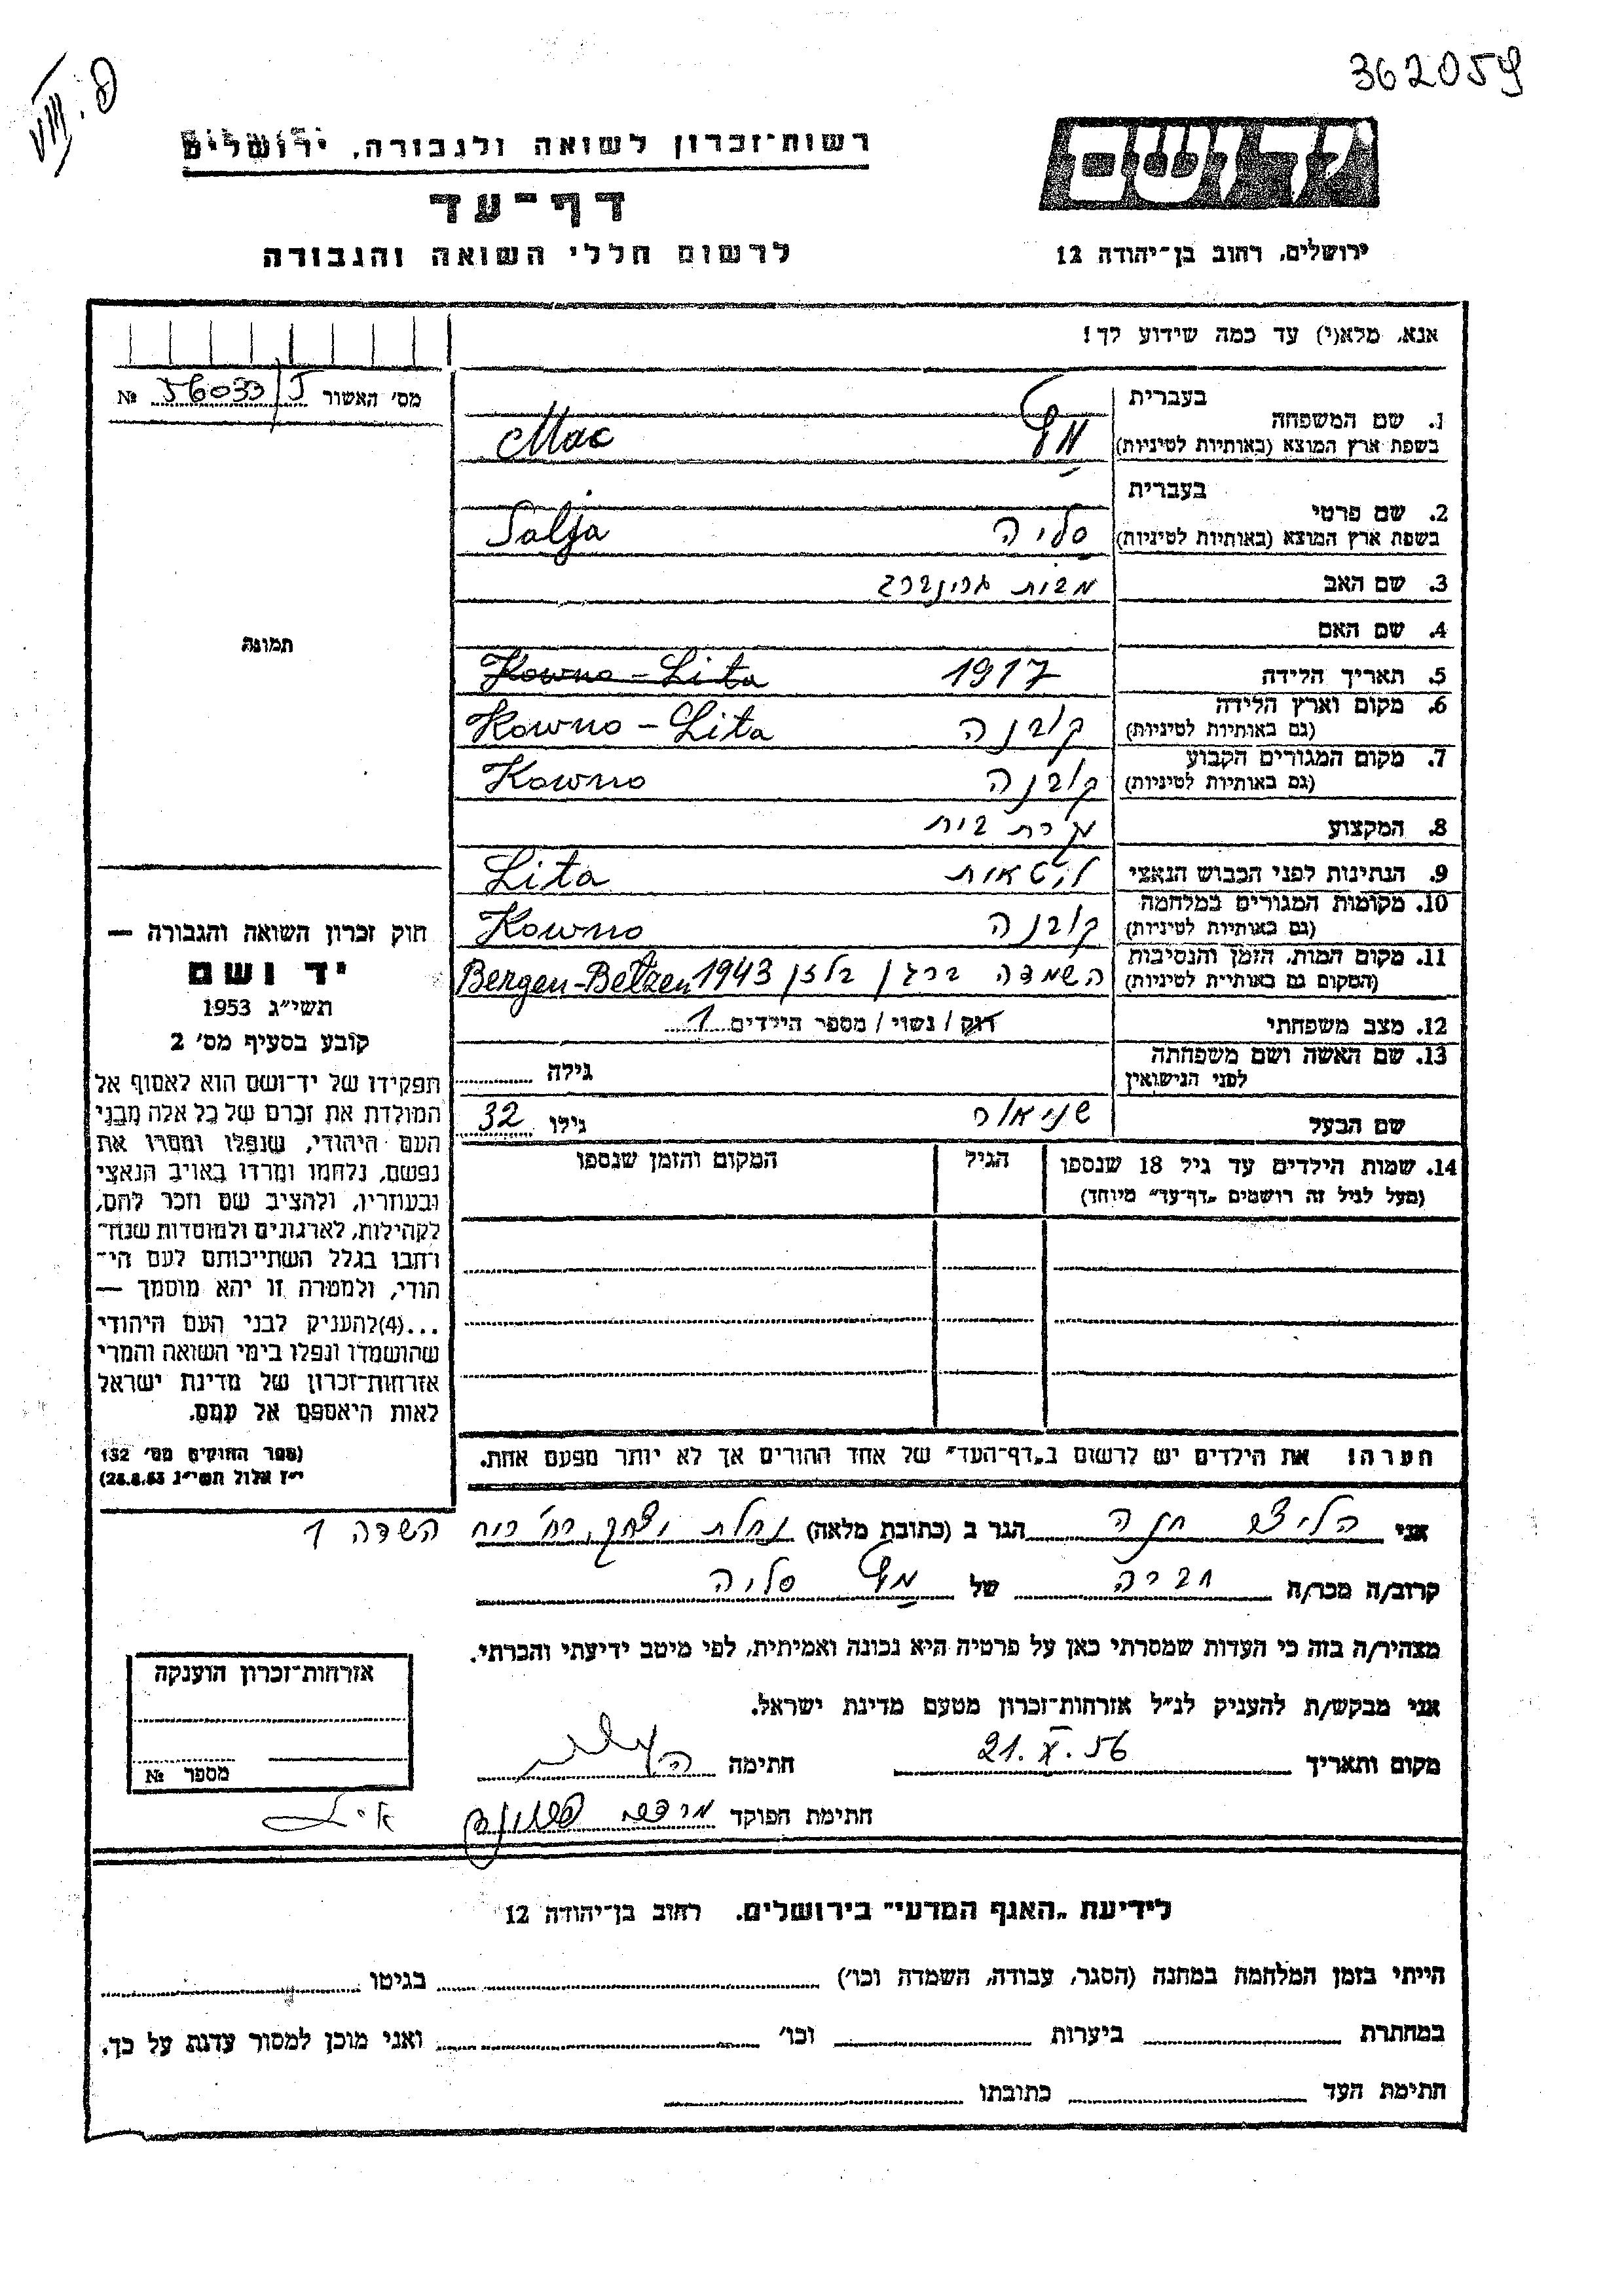 362059
VIII. פ
רשות־זכרון לשואה ולגבורה, ירושלים
דף־עד
לרשום חללי השואה והגבורה
יד ושם
ירושלים, רחוב בן־יהודה 12
אנא, מלא(י) עד כמה שידוע לך!
מס' האשור 56033/5 №
תמונה
1. שם המשפחה
בעברית
בשפת ארץ המוצא (באותיות לטיניות) Mac
2. שם פרטי
בעברית סליה
בשפת ארץ המוצא (באותיות לטיניות) Salja
3. שם האב מבית גרינברג
4. שם האם
5. תאריך הלידה 1917 Kowno - Lita
6. מקום וארץ הלידה קובנה Kowno - Lita
(גם באותיות לטיניות)
7. מקום המגורים הקבוע קובנה Kowno
(גם באותיות לטיניות)
8. המקצוע עקרת בית
9. הנתינות לפני הכבוש הנאצי ליטאית Lita
10. מקומות המגורים במלחמה קובנה Kowno
(גם באותיות לטיניות)
11. מקום המות, הזמן והנסיבות השמדה ברגן בלזן 1943 Bergen-Belzen
(המקום גם באותיות לטיניות)
12. מצב משפחתי רוק / נשוי / מספר הילדים 1
13. שם האשה ושם משפחתה
לפני הנישואין גילה
שם הבעל שניאור גילו 32
14. שמות הילדים עד גיל 18 שנספו הגיל המקום והזמן שנספו
(מעל לגיל זה רושמים „דף־עד" מיוחד)
הערה! את הילדים יש לרשום ב„דף־העד" של אחד ההורים אך לא יותר מפעם אחת.
חוק זכרון השואה והגבורה —
יד ושם
תשי"ג 1953
קובע בסעיף מס' 2
תפקידו של יד־ושם הוא לאסוף אל
המולדת את זכרם של כל אלה מבני
העם היהודי, שנפלו ומסרו את
נפשם, נלחמו ומרדו באויב הנאצי
ובעוזריו, ולהציב שם וזכר להם,
לקהילות, לארגונים ולמוסדות שנח־
רחבו בגלל השתייכותם לעם הי־
הודי, ולמטרה זו יהא מוסמך —
...(4)להעניק לבני העם היהודי
שהושמדו ונפלו בימי השואה והמרי
אזרחות־זכרון של מדינת ישראל
לאות היאספם אל עמם.
(ספר החוקים מס' 132
י"ז אלול תשי"ג 28.8.53)
אני חנה הגר ב (כתובת מלאה) נחלת יצחק, רח' השדה 1
קרוב/ה מכר/ה חברה של סליה
מצהיר/ה בזה כי העדות שמסרתי כאן על פרטיה היא נכונה ואמיתית, לפי מיטב ידיעתי והכרתי.
אני מבקש/ת להעניק לנ"ל אזרחות־זכרון מטעם מדינת ישראל.
מקום ותאריך 21.X.56 חתימה
חתימת הפוקד
אזרחות־זכרון הוענקה
מספר №
לידיעת „האגף המדעי" בירושלים, רחוב בן־יהודה 12
הייתי בזמן המלחמה במחנה (הסגר, עבודה, השמדה וכו') בגיטו
במחתרת ביערות וכו' ואני מוכן למסור עדות על כך.
חתימת העד כתובתו